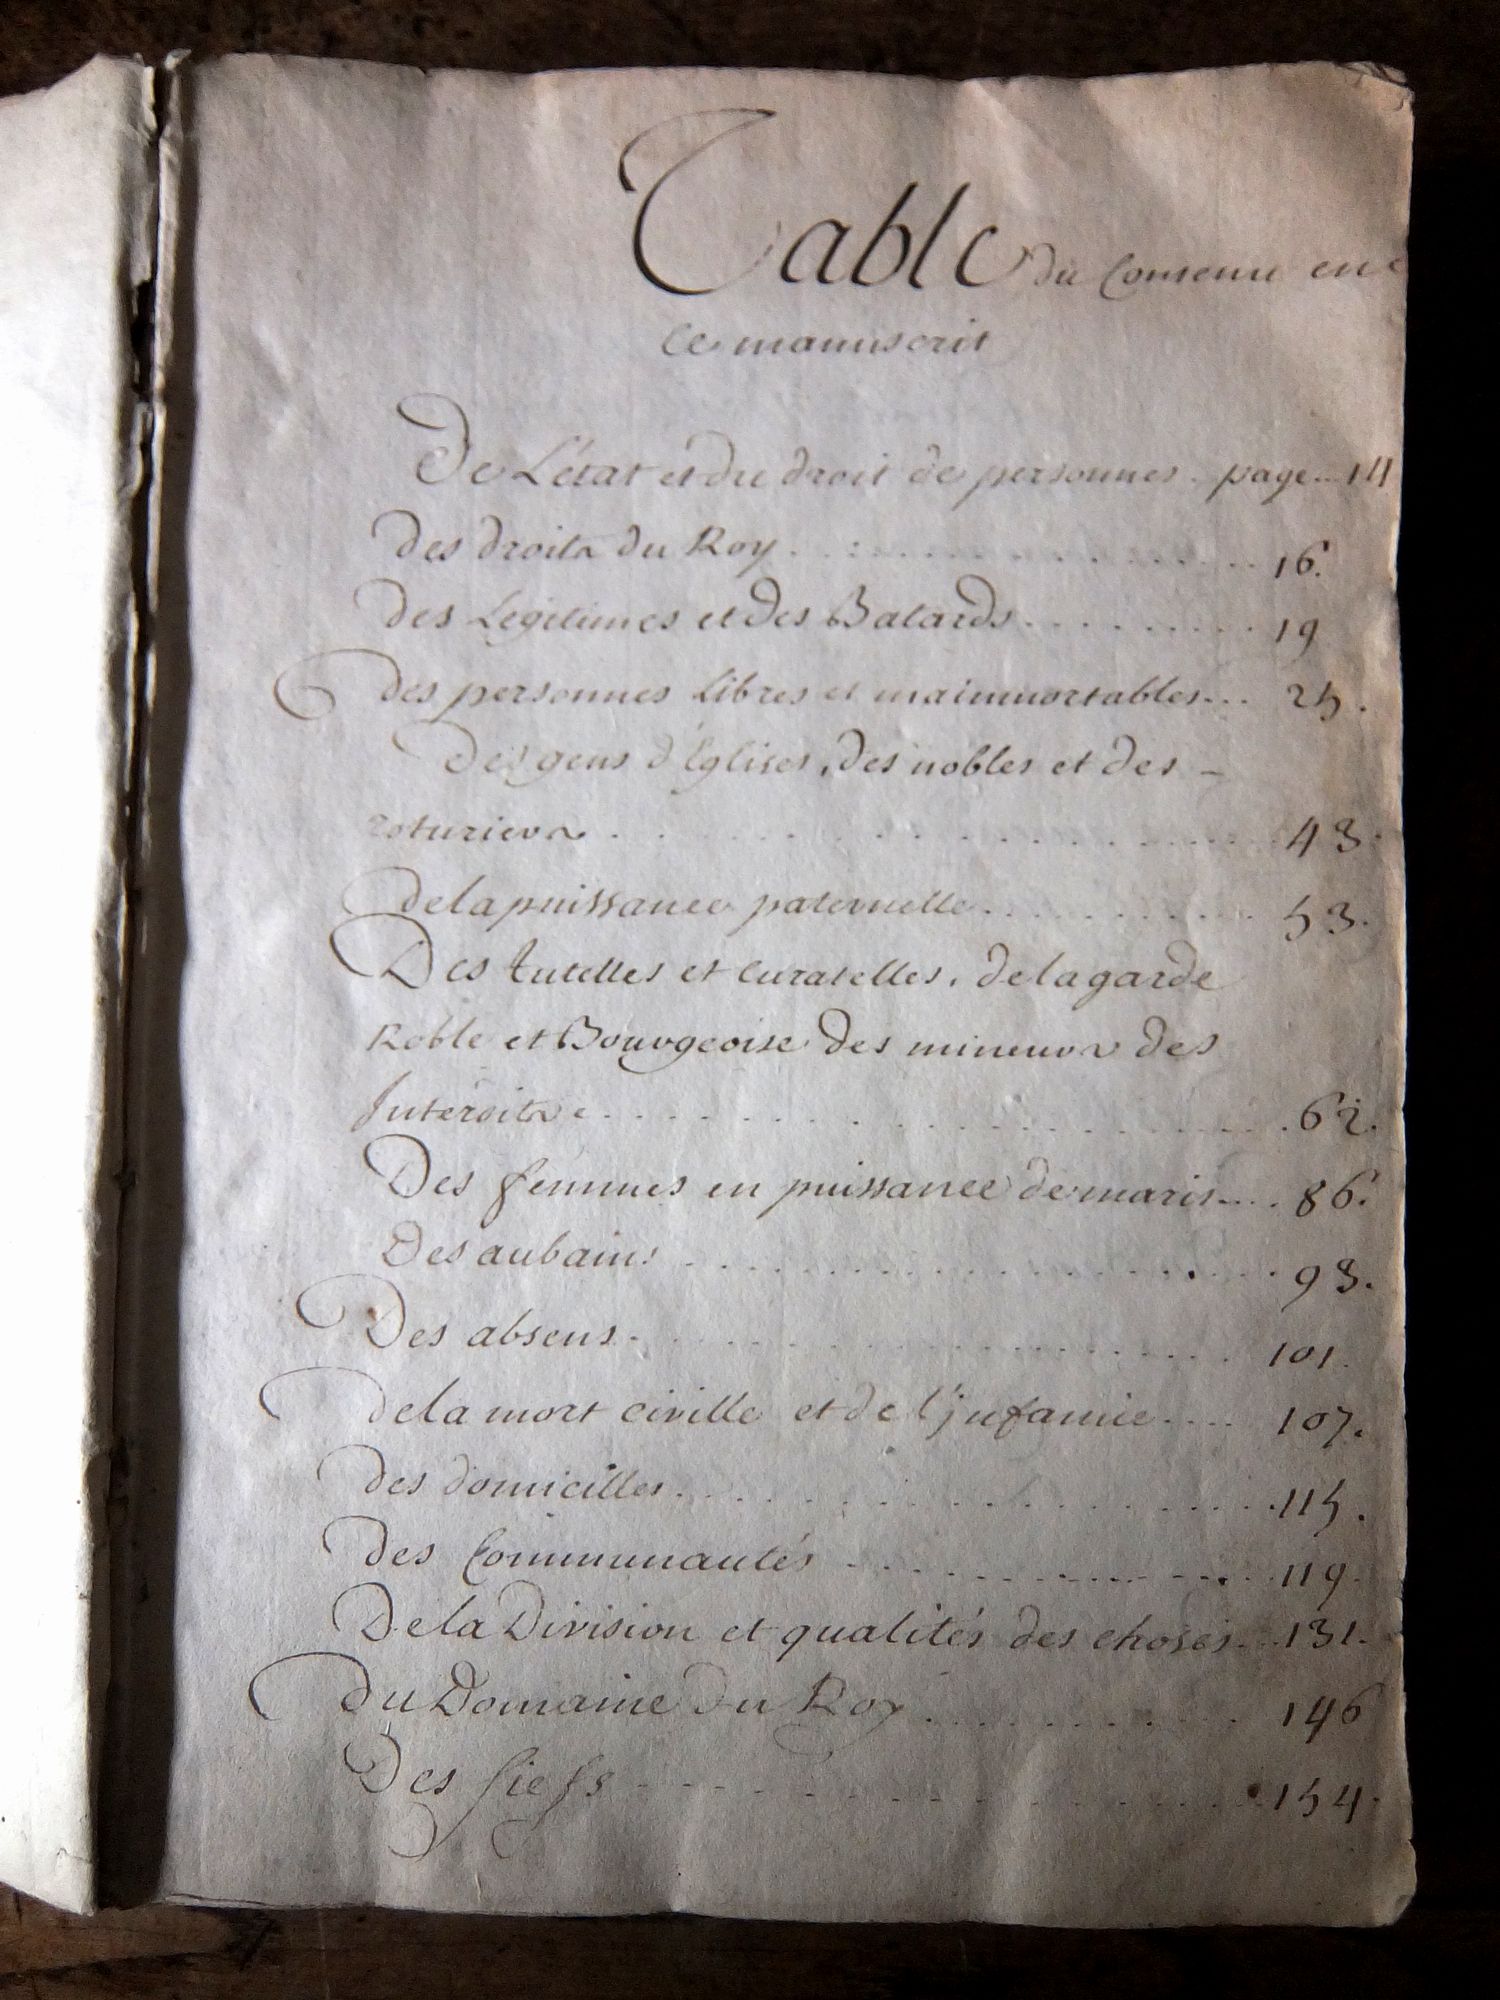 Table du Contenu en
ce manuscrit
De L'état et du droit de personnes. page... 14
des droits du Roy . . . . . . . . . . . . . . . 16.
des Légitimes et des Batards . . . . . . . . . 19
des personnes Libres et mainmortables... 25.
Des gens d'Eglises, des nobles et des -
roturiers . . . . . . . . . . . . . . . . . . . . 43.
de la puissance paternelle . . . . . . . . . . 53.
Des tutelles et curatelles, de la garde
Noble et Bourgeoise des mineurs des
Interdits . . . . . . . . . . . . . . . . . . . 62.
Des femmes en puissance de maris.... 86.
Des aubains . . . . . . . . . . . . . . . . . . 93.
Des absens . . . . . . . . . . . . . . . . . . 101.
de la mort civille et de l'jnfamie.... 107.
des domicilles . . . . . . . . . . . . . . . . . 115.
des Communautés . . . . . . . . . . . . . . 119.
De la Division et qualités des choses... 131.
du Domaine du Roy . . . . . . . . . . . . 146
Des fiefs . . . . . . . . . . . . . . . . . . . 154.